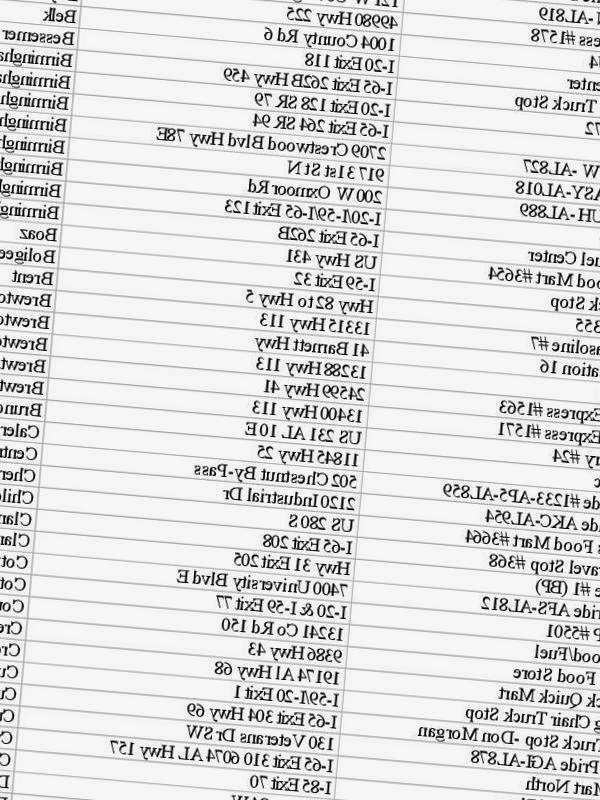 -AL819 121 W
ess #1578 49980 Hwy 225
4 1004 County Rd 6 Belk
enter I-20 Exit 118 Bessemer
Truck Stop I-65 Exit 262B Hwy 459 Birmingha
72 I-20 Exit 128 SR 79 Birmingha
I-65 Exit 264 SR 94 Birmingha
W -AL827 2709 Crestwood Blvd Hwy 78E Birmingh
ASY-AL018 917 31st St N Birmingh
UH -AL889 200 W Oxmoor Rd Birming
I-20/I-59/I-65 Exit 123 Birming
uel Center I-65 Exit 262B Birming
ood Mart #3654 US Hwy 431 Boaz
ck Stop I-59 Exit 32 Boligee
355 Hwy 82 to Hwy 5 Brent
asoline #7 13315 Hwy 113 Brewto
ation 16 41 Barnett Hwy Brewto
13288 Hwy 113 Brewto
Express #1563 24599 Hwy 41 Brewt
Express #1571 13400 Hwy 113 Brewt
ry #24 US 231 AL 10 E Brun
c 11845 Hwy 25 Caler
de #1233-AP5-AL859 502 Chestnut By-Pass Centr
ide AKC-AL954 2120 Industrial Dr Cher
s Food Mart #3664 US 280 S Child
ravel Stop #368 I-65 Exit 208 Clan
e #1 (BP) Hwy 31 Exit 205 Clan
ride AFS-AL812 7400 University Blvd E Cott
P #5501 I-20 & I-59 Exit 77 Cot
ood/Fuel 13241 Co Rd 150 Cou
Food Store 9386 Hwy 43 Cre
k Quick Mart 19174 Al Hwy 68 Cro
g Chair Truck Stop I-59/I-20 Exit 1 Cu
ruck Stop -Don - Morgan I-65 Exit 304 Hwy 69 Cu
Pride AGI-AL878 130 Veterans Dr SW Cu
art North I-65 Exit 310 6074 AL Hwy 157 C
I-85 Exit 70